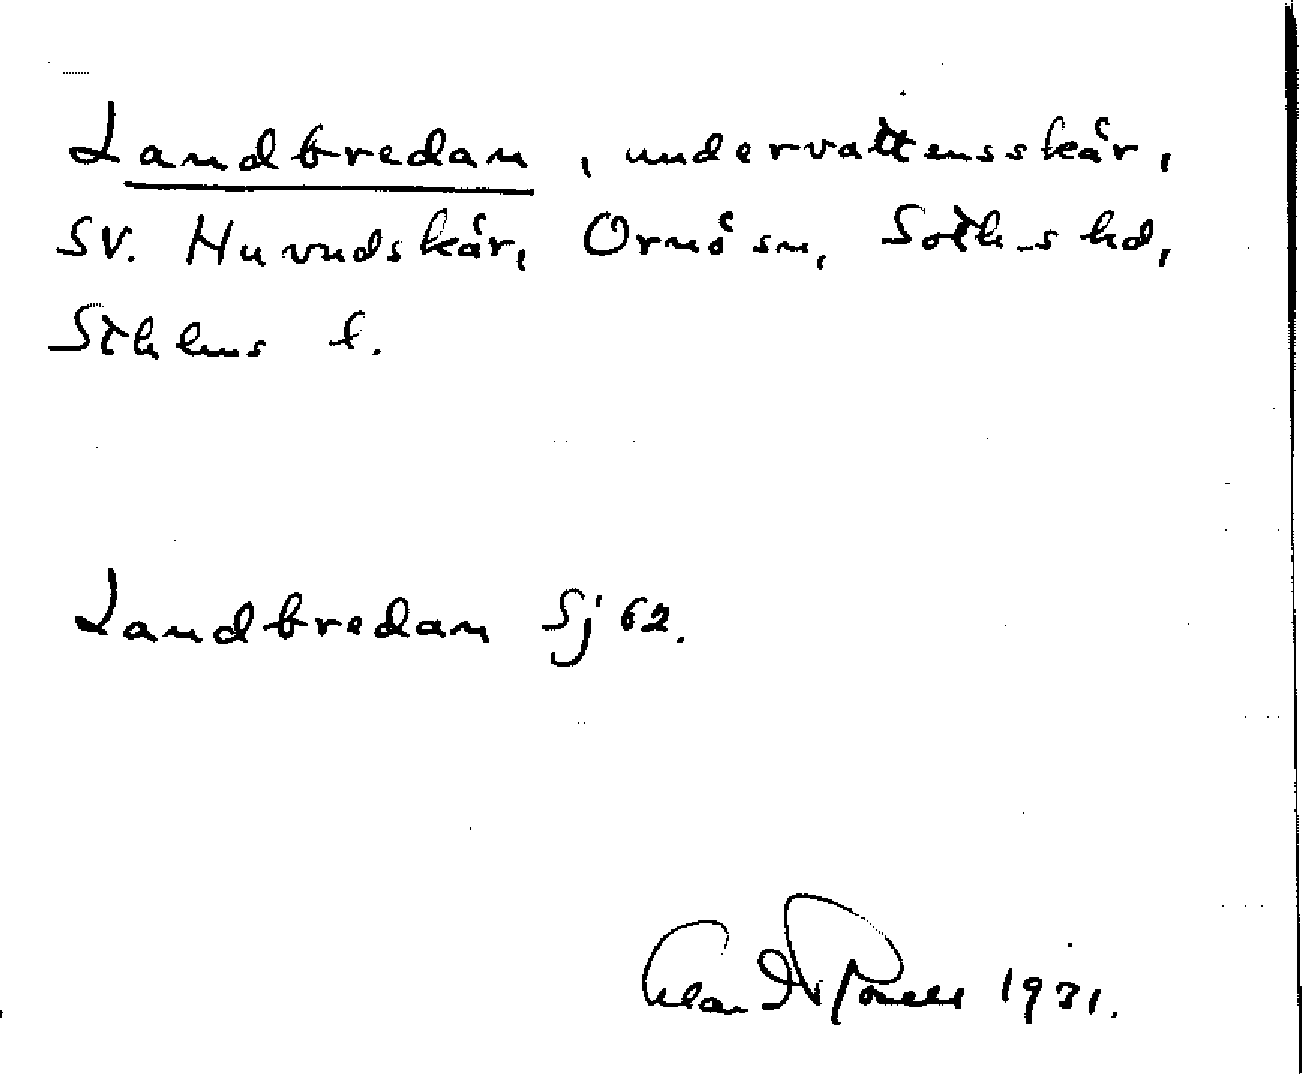 Landbredan, undervattensskär,
SV. Huvudskär, Ornö sn, Soths hd,
Sthlms l.
Landbredan Sj 62.
1931.